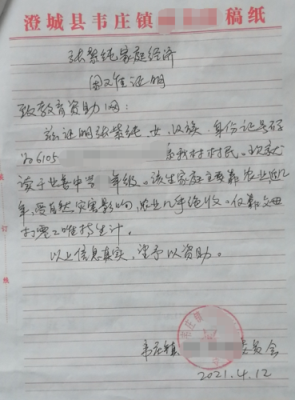 澄城县韦庄镇 稿纸
张紫纯家庭经济
困难证明
致教育资助网:
兹证明张紫纯,女,汉族,身份证号码
为6105 系我村村民。现就
读于 中学 年级。该生家庭主要靠农业,近几
年,受自然灾害影响,农业几乎绝收。仅靠父母
打零工维持生计。
以上信息真实,望予以资助。
韦庄镇 委员会
2021.4.12